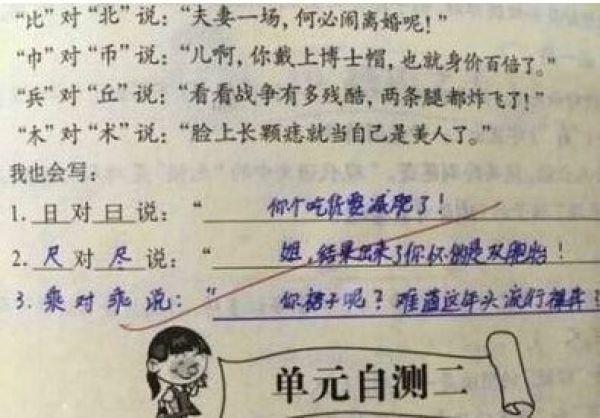 “比”对“北”说：“夫妻一场，何必闹离婚呢！”
“巾”对“币”说：“儿啊，你戴上博士帽，也就身价百倍了。”
“兵”对“丘”说：“看看战争有多残酷，两条腿都炸飞了！”
“木”对“术”说：“脸上长颗痣就当自己是美人了。”
我也会写：
1. 日 对 曰 说：“ 你个吃货要减肥了！
2. 尺 对 尽 说：“ 姐，结果出来了你怀的是双胞胎！
3. 乘 对 乖 说：“ 你裙子呢？难道这年头流行裤
单元自测二